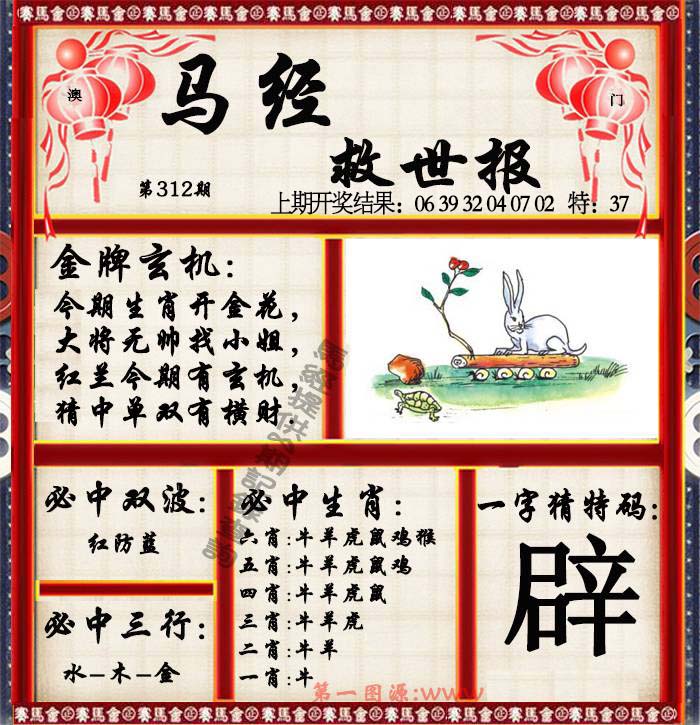 賽馬會金正賽馬會金正賽馬會金正賽馬會
澳
门
马经
救世报
第312期
上期开奖结果：06 39 32 04 07 02 特：37
金牌玄机：
今期生肖开金花，
大将无帅找小姐，
红兰今期有玄机，
猜中单双有横财.
必中双波：
红防蓝
必中三行：
水–木–金
必中生肖：
六肖:牛羊虎鼠鸡猴
五肖:牛羊虎鼠鸡
四肖:牛羊虎鼠
三肖:牛羊虎
二肖:牛羊
一肖:牛
一字猜特码：
辟
第一图源:www